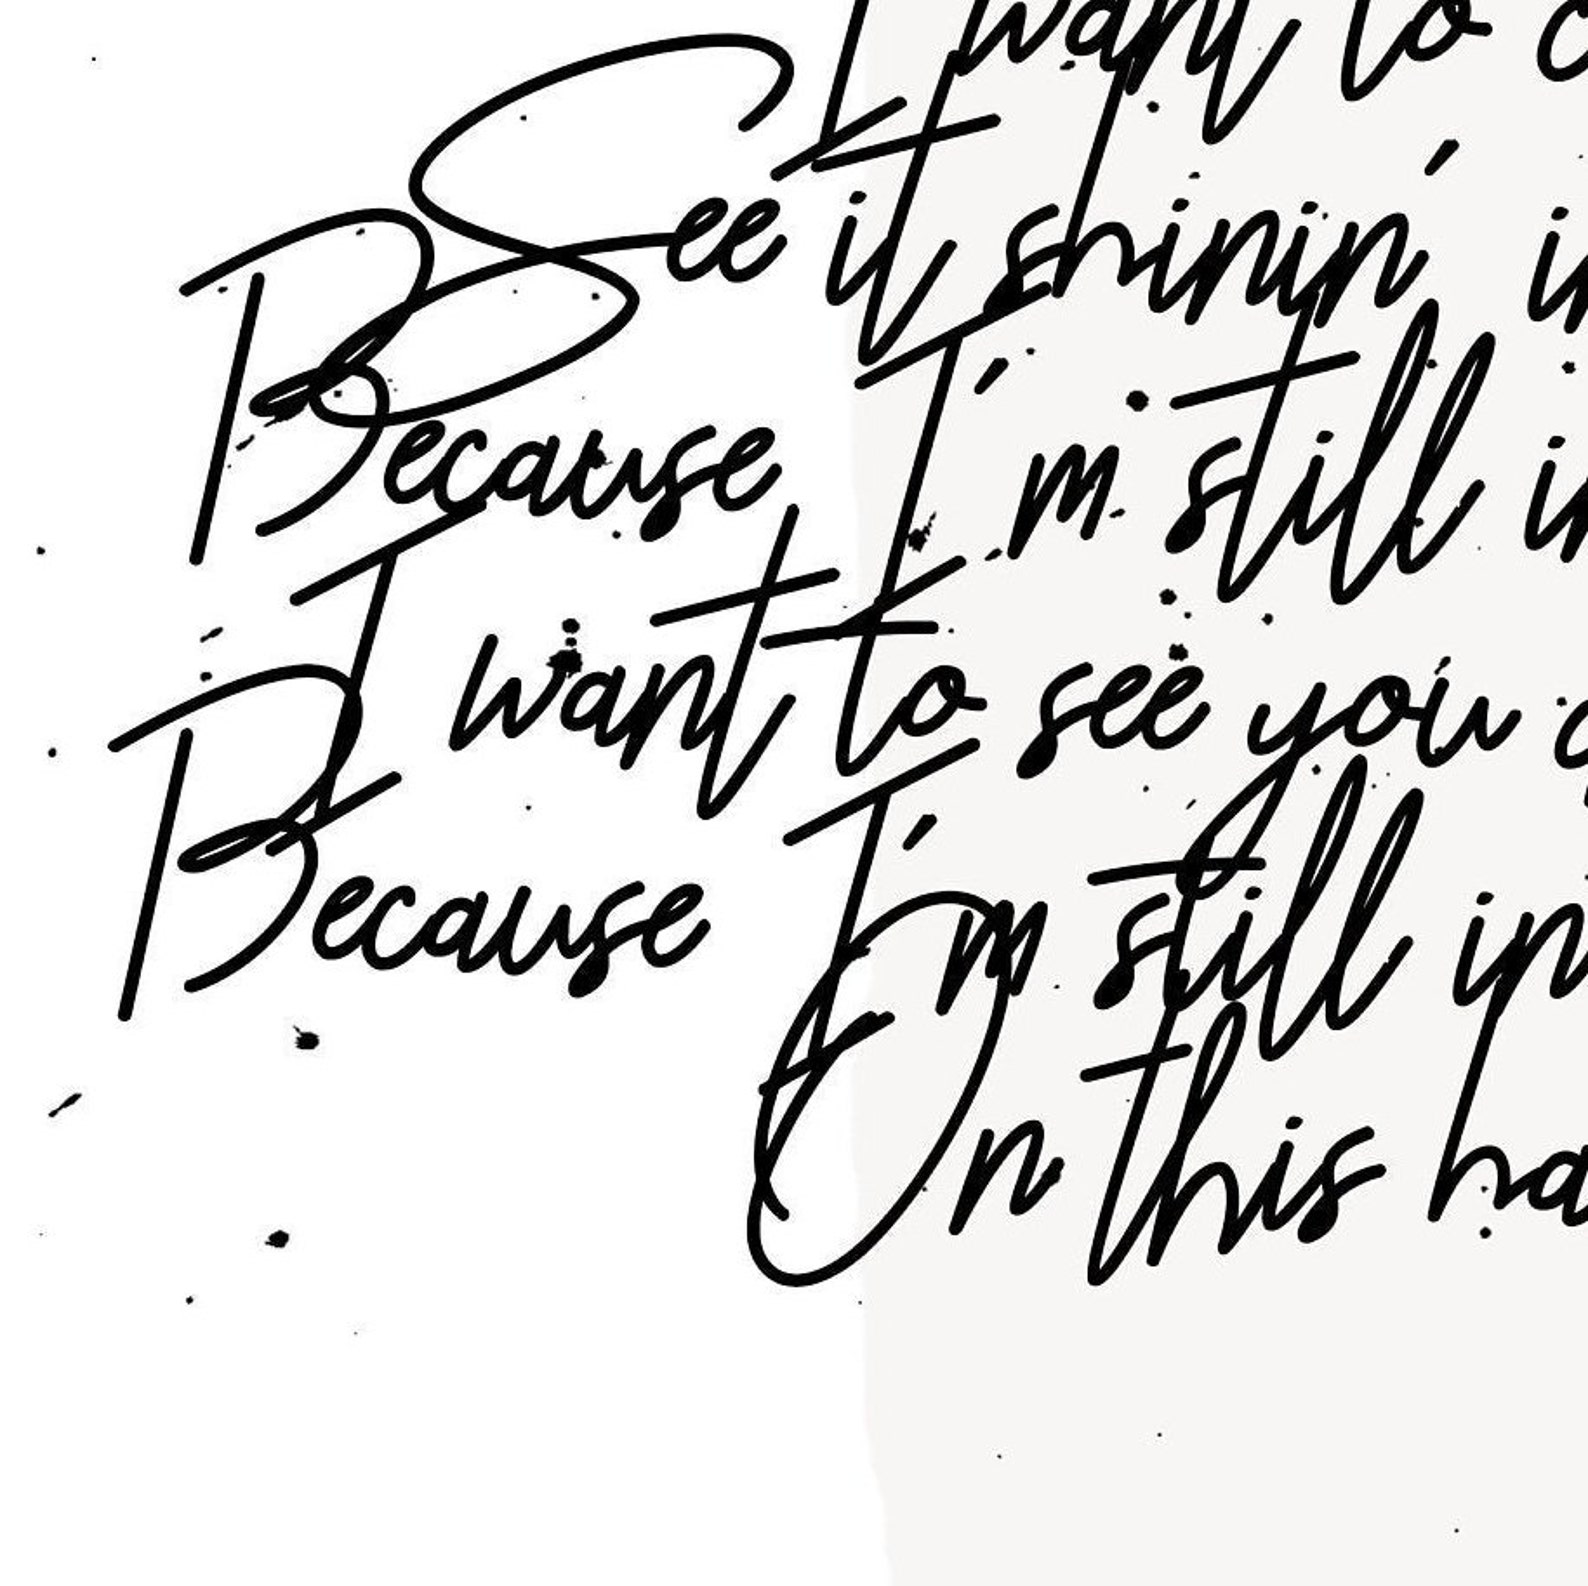 I want to c
See it shinin' in
Because I'm still in
I want to see you
Because I'm still in
On this ha